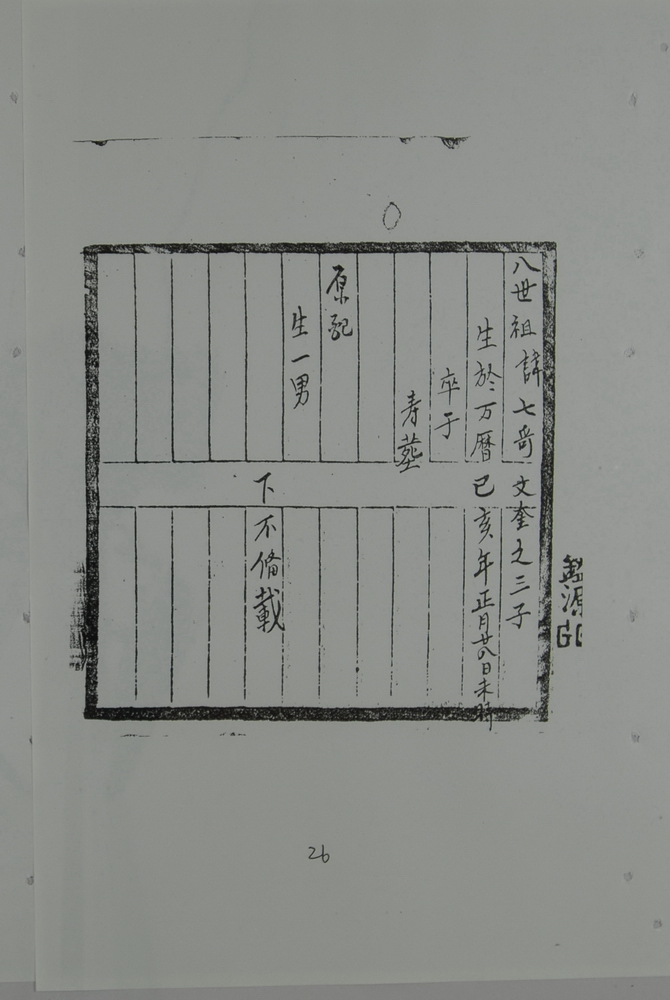 八世祖諱七哥 文奎之三子
生於万曆己亥年正月廿八日未時
卒于
寿塟
原配
生一男
下不俻載
26